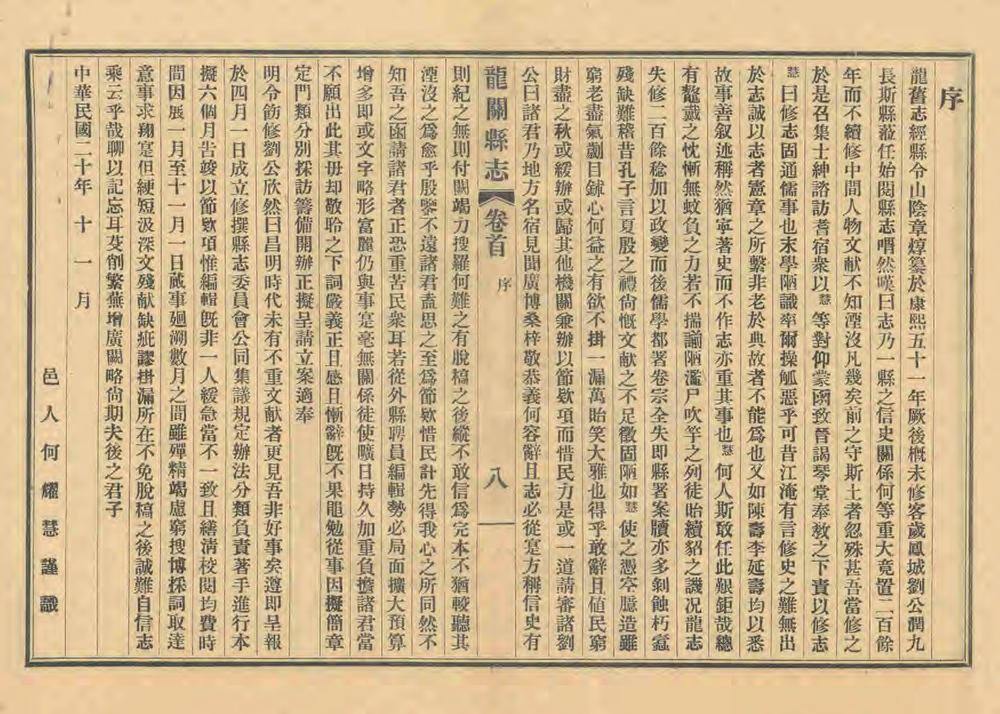 序
龍舊志經縣令山陰章焞纂於康熙五十一年厥後槪未修客歲鳳城劉公潤九
長斯縣蒞任始閱縣志喟然嘆曰志乃一縣之信史關係何等重大竟置二百餘
年而不續修中間人物文献不知湮沒凡幾矣前之守斯土者忽殊甚吾當修之
於是召集士紳諮訪耆宿衆以慧等對仰蒙函致晉謁琴堂奉敎之下責以修志
慧曰修志固通儒事也末學陋識率爾操觚惡乎可昔江淹有言修史之難無出
於志誠以志者憲章之所繫非老於典故者不能爲也又如陳壽李延壽均以悉
故事善叙述稱然猶寧著史而不作志亦重其事也慧何人斯敢任此艱鉅哉總
有鼇戴之忱慚無蚊負之力若不揣謭陋濫尸吹竽之列徒貽續貂之譏况龍志
失修二百餘稔加以政變而後儒學都署卷宗全失即縣署案牘亦多剝蝕朽蠹
殘缺難稽昔孔子言夏殷之禮尙慨文献之不足徵固陋如慧使之憑空臆造雖
窮老盡氣劌目鉥心何益之有欲不掛一漏萬貽笑大雅也得乎敢辭且值民窮
財盡之秋或緩辦或歸其他機關兼辦以節欵項而惜民力是或一道請審諸劉
公曰諸君乃地方名宿見聞廣博桑梓敬恭義何容辭且志必從寔方稱信史有
龍關縣志
卷首
序
八
則紀之無則付闕竭力搜羅何難之有脫稿之後縱不敢信爲完本不猶較聽其
湮沒之爲愈乎殷鑒不遠諸君盍思之至爲節欵惜民計先得我心之所同然不
知吾之函請諸君者正恐重苦民衆耳若從外縣聘員編輯勢必局面擴大預算
增多即或文字略形富麗仍與事寔毫無關係徒使曠日持久加重負擔諸君當
不願出此其毋却敬聆之下詞嚴義正且感且慚辭旣不果黽勉從事因擬簡章
定門類分別採訪籌備開辦正擬呈請立案適奉
明令飭修劉公欣然曰昌明時代未有不重文献者更見吾非好事矣遵即呈報
於四月一日成立修撰縣志委員會公同集議規定辦法分類負責著手進行本
擬六個月告竣以節欵項惟編輯旣非一人緩急當不一致且繕清校閱均費時
間因展一月至十一月一日蕆事廻溯數月之間雖殫精竭慮窮搜博採詞取達
意事求翔寔但綆短汲深文殘献缺疵謬掛漏所在不免脫稿之後誠難自信志
乘云乎哉聊以記忘耳芟削繁蕪增廣闕略尙期夫後之君子
中華民國二十年十一月
邑人何燿慧謹識